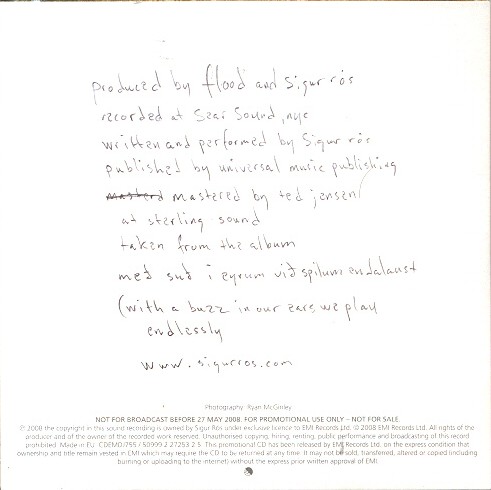 produced by flood and sigur rós
recorded at sear sound, nyc
written and performed by sigur rós
published by universal music publishing
masterd mastered by ted jensen
at sterling sound
taken from the album
með suð í eyrum við spilum endalaust
(with a buzz in our ears we play
endlessly
www.sigurros.com
Photography: Ryan McGinley
NOT FOR BROADCAST BEFORE 27 MAY 2008. FOR PROMOTIONAL USE ONLY – NOT FOR SALE.
℗ 2008 the copyright in this sound recording is owned by Sigur Rós under exclusive licence to EMI Records Ltd. © 2008 EMI Records Ltd. All rights of the
producer and of the owner of the recorded work reserved. Unauthorised copying, hiring, renting, public performance and broadcasting of this record
prohibited. Made in EU. CDEMDJ755 / 50999 2 27253 2 5. This promotional CD has been released by EMI Records Ltd. on the express condition that
ownership and title remain vested in EMI which may require the CD to be returned at any time. It may not be sold, transferred, altered or copied (including
burning or uploading to the internet) without the express prior written approval of EMI.